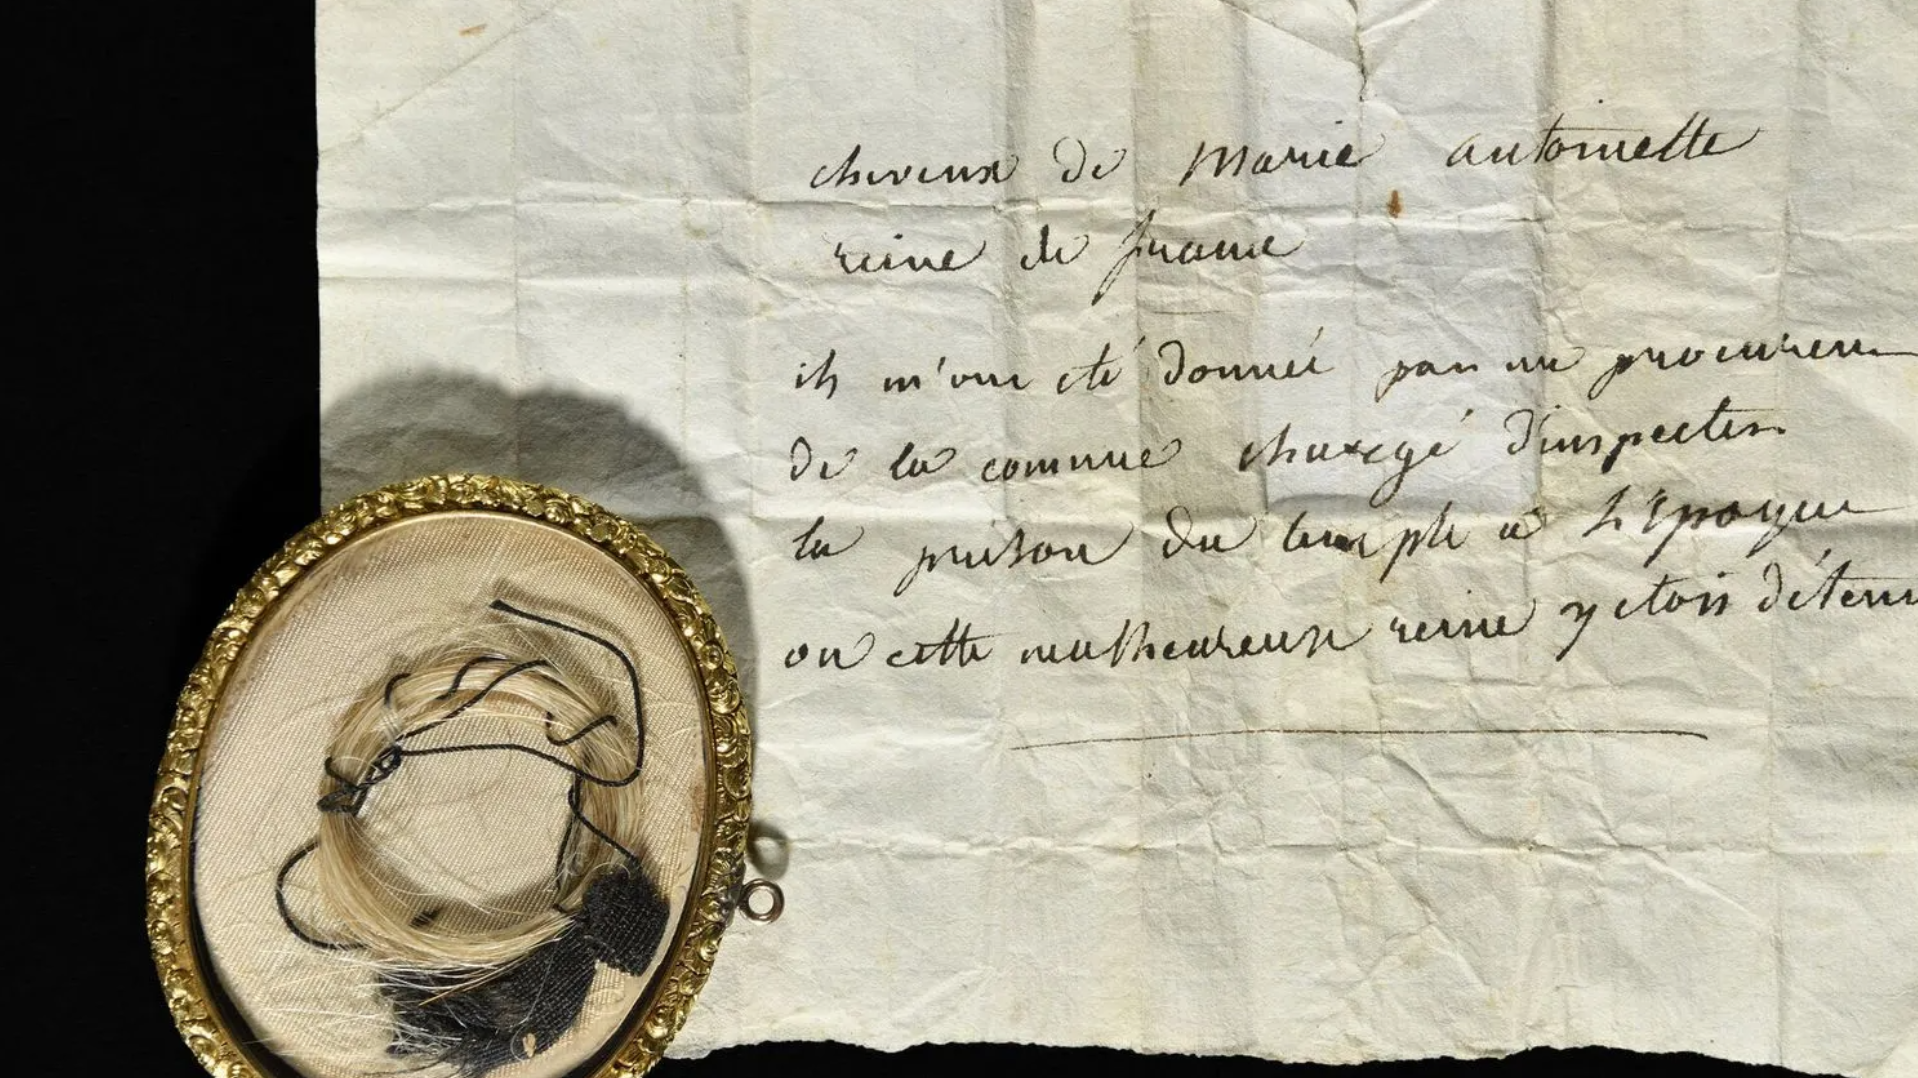 cheveux de Marie antoinette
reine de france
ils m'ont été donnée par un procureur
de la commne chargé d'inspecter
la prison du temple a l'époque
ou cette malheureuse reine y etois détenu